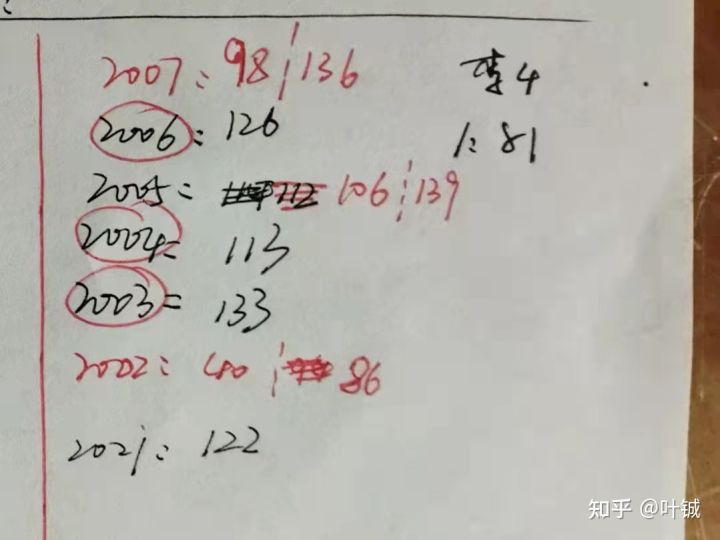 2007: 98 ¦ 136
李4
2006: 126
1: 81
2005: 106 ¦ 139
2004: 113
2003: 133
2002: 480 ¦ 86
2021: 122
知乎 @叶铖